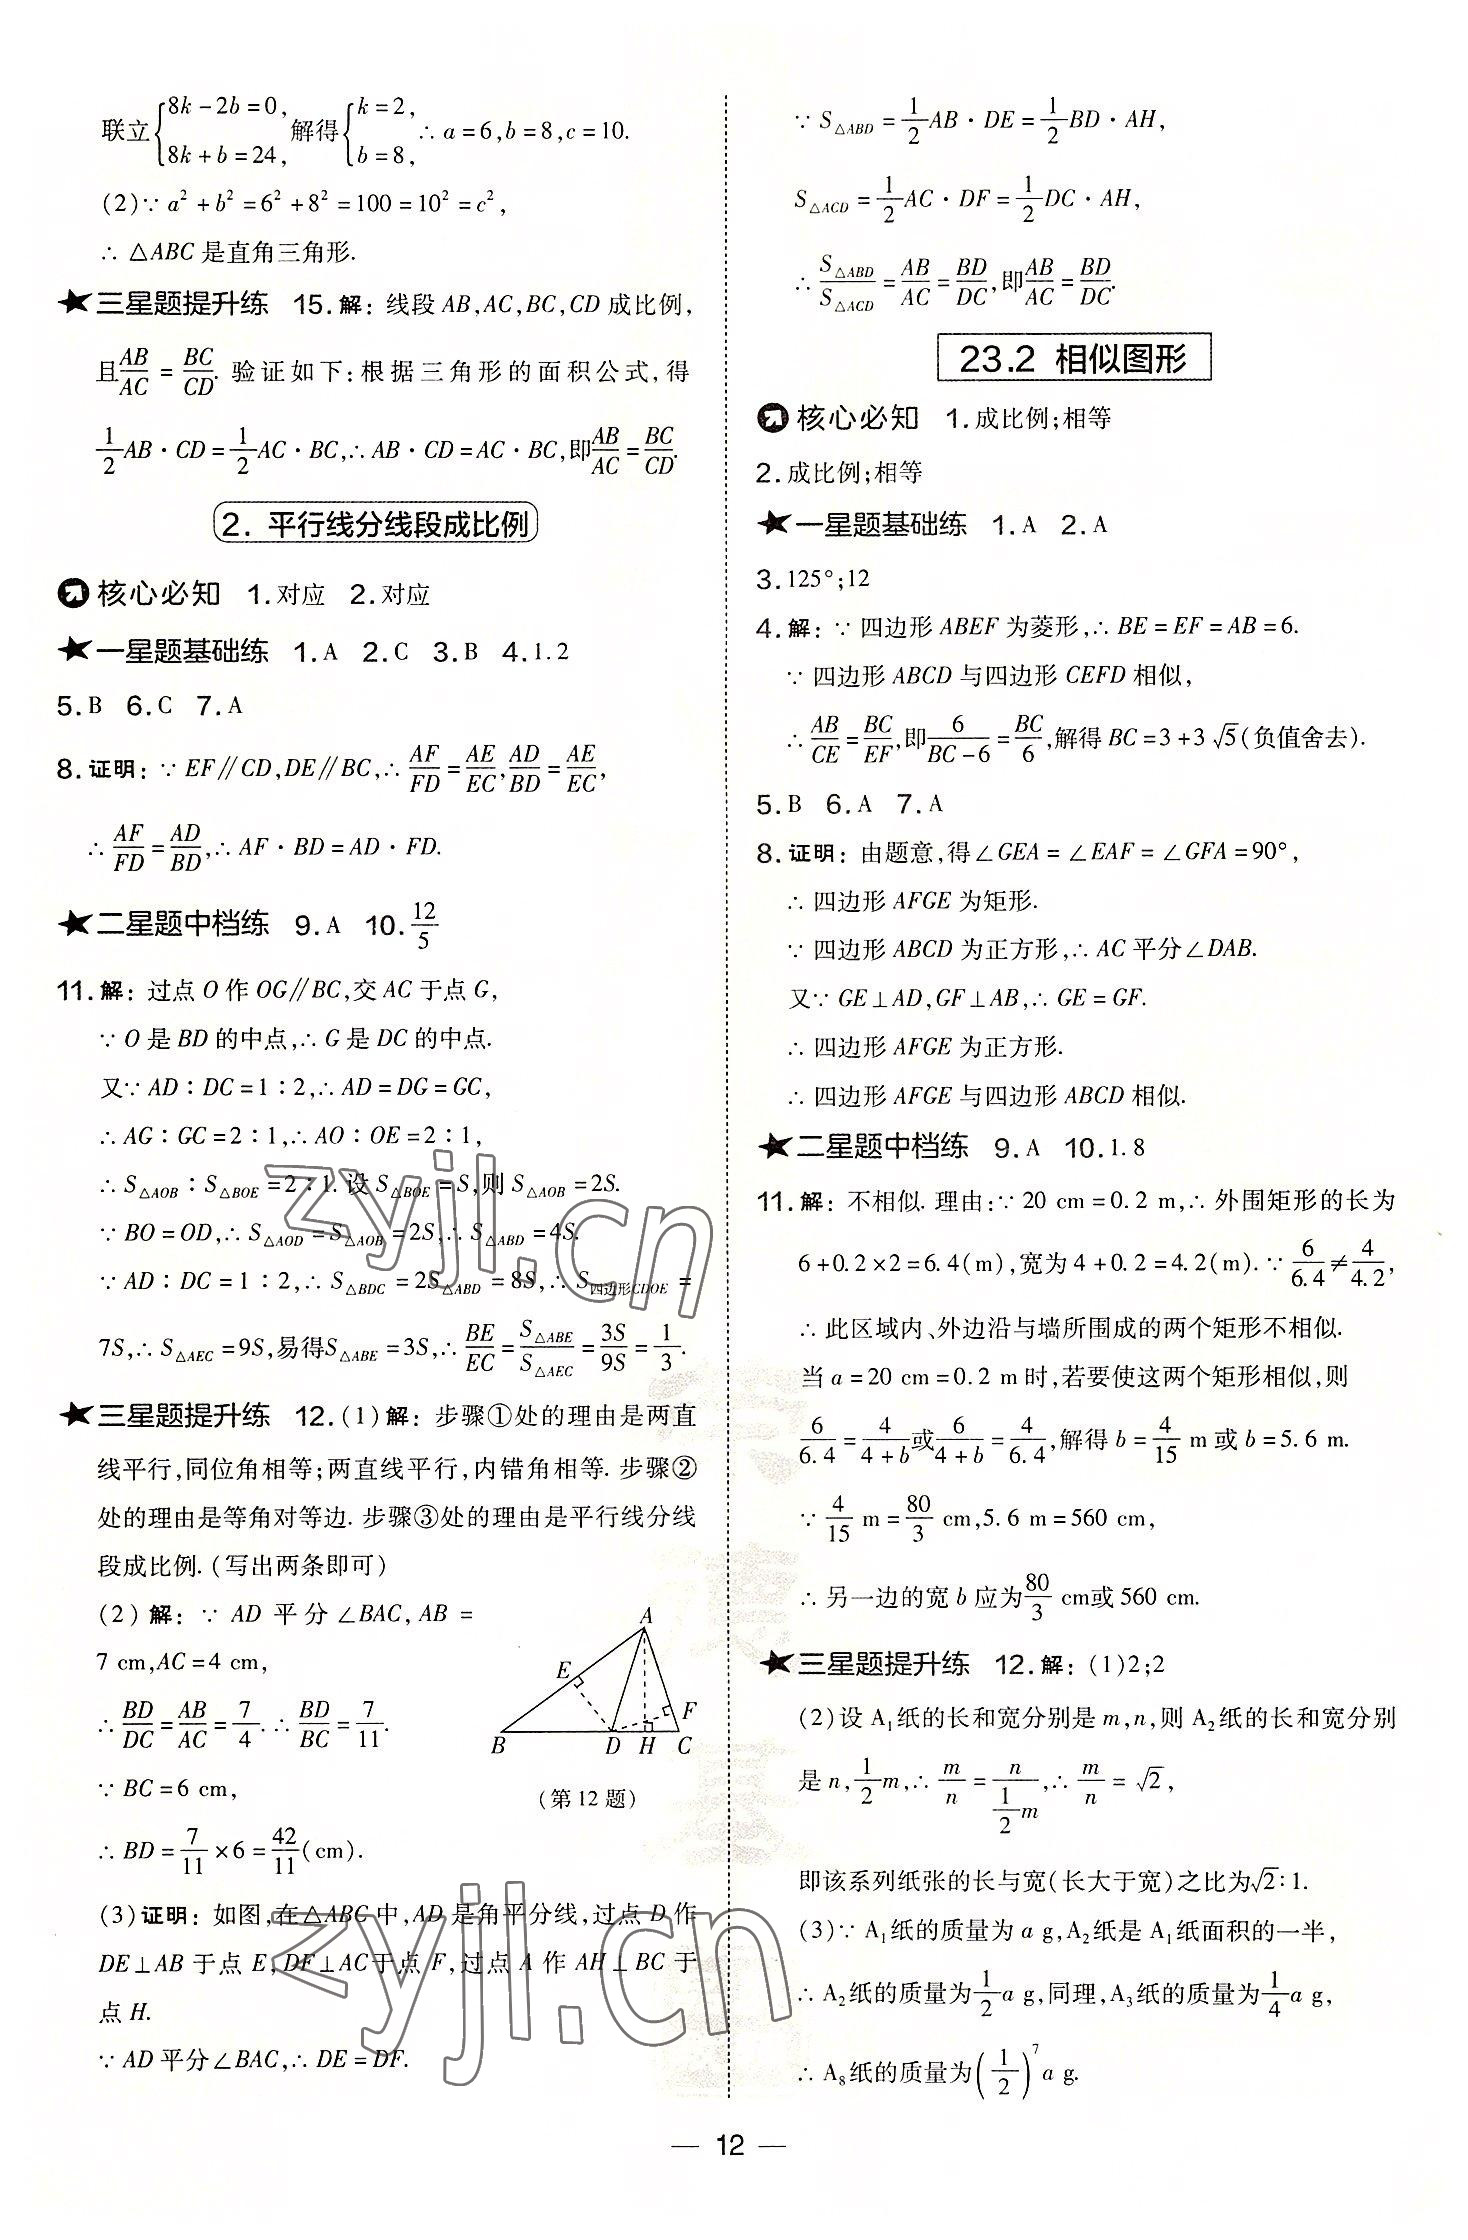 联立{8k-2b=0, 8k+b=24, 解得{k=2, b=8, ∴a=6,b=8,c=10.
(2)∵a²+b²=6²+8²=100=10²=c²,
∴△ABC是直角三角形.
★三星题提升练 15.解：线段AB,AC,BC,CD成比例,
且AB/AC=BC/CD. 验证如下：根据三角形的面积公式,得
1/2AB·CD=1/2AC·BC,∴AB·CD=AC·BC,即AB/AC=BC/CD.
2. 平行线分线段成比例
核心必知 1.对应 2.对应
★一星题基础练 1.A 2.C 3.B 4.1.2
5.B 6.C 7.A
8.证明：∵EF∥CD,DE∥BC,∴AF/FD=AE/EC,AD/BD=AE/EC,
∴AF/FD=AD/BD,∴AF·BD=AD·FD.
★二星题中档练 9.A 10.12/5
11.解：过点O作OG∥BC,交AC于点G,
∵O是BD的中点,∴G是DC的中点.
又∵AD∶DC=1∶2,∴AD=DG=GC,
∴AG∶GC=2∶1,∴AO∶OE=2∶1,
∴S△AOB∶S△BOE=2∶1.设S△BOE=S,则S△AOB=2S.
∵BO=OD,∴S△AOD=S△AOB=2S,∴S△ABD=4S.
∵AD∶DC=1∶2,∴S△BDC=2S△ABD=8S,∴S四边形CDOE=
7S,∴S△AEC=9S,易得S△ABE=3S,∴BE/EC=S△ABE/S△AEC=3S/9S=1/3.
★三星题提升练 12.(1)解：步骤①处的理由是两直
线平行,同位角相等;两直线平行,内错角相等. 步骤②
处的理由是等角对等边. 步骤③处的理由是平行线分线
段成比例.(写出两条即可)
(2)解：∵AD平分∠BAC,AB=
7 cm,AC=4 cm,
∴BD/DC=AB/AC=7/4.∴BD/BC=7/11.
∵BC=6 cm,
∴BD=7/11×6=42/11(cm).
A
E
F
B D H C
(第12题)
(3)证明：如图,在△ABC中,AD是角平分线,过点D作
DE⊥AB于点E,DF⊥AC于点F,过点A作AH⊥BC于
点H.
∵AD平分∠BAC,∴DE=DF.
∵S△ABD=1/2AB·DE=1/2BD·AH,
S△ACD=1/2AC·DF=1/2DC·AH,
∴S△ABD/S△ACD=AB/AC=BD/DC,即AB/AC=BD/DC.
23.2 相似图形
核心必知 1.成比例;相等
2.成比例;相等
★一星题基础练 1.A 2.A
3.125°;12
4.解：∵四边形ABEF为菱形,∴BE=EF=AB=6.
∵四边形ABCD与四边形CEFD相似,
∴AB/CE=BC/EF,即6/(BC-6)=BC/6,解得BC=3+3√5(负值舍去).
5.B 6.A 7.A
8.证明：由题意,得∠GEA=∠EAF=∠GFA=90°,
∴四边形AFGE为矩形.
∵四边形ABCD为正方形,∴AC平分∠DAB.
又∵GE⊥AD,GF⊥AB,∴GE=GF.
∴四边形AFGE为正方形.
∴四边形AFGE与四边形ABCD相似.
★二星题中档练 9.A 10.1.8
11.解：不相似.理由：∵20 cm=0.2 m,∴外围矩形的长为
6+0.2×2=6.4(m),宽为4+0.2=4.2(m).∵6/6.4≠4/4.2,
∴此区域内、外边沿与墙所围成的两个矩形不相似.
当a=20 cm=0.2 m时,若要使这两个矩形相似,则
6/6.4=4/(4+b)或6/(4+b)=4/6.4,解得b=4/15 m或b=5.6 m.
∵4/15 m=80/3 cm,5.6 m=560 cm,
∴另一边的宽b应为80/3 cm或560 cm.
★三星题提升练 12.解：(1)2;2
(2)设A₁纸的长和宽分别是m,n,则A₂纸的长和宽分别
是n,1/2m,∴m/n=n/(1/2m),∴m/n=√2,
即该系列纸张的长与宽(长大于宽)之比为√2∶1.
(3)∵A₁纸的质量为a g,A₂纸是A₁纸面积的一半,
∴A₂纸的质量为1/2a g,同理,A₃纸的质量为1/4a g,
∴A₈纸的质量为(1/2)⁷a g.
— 12 —
zyjl.cn
zyjl.cn